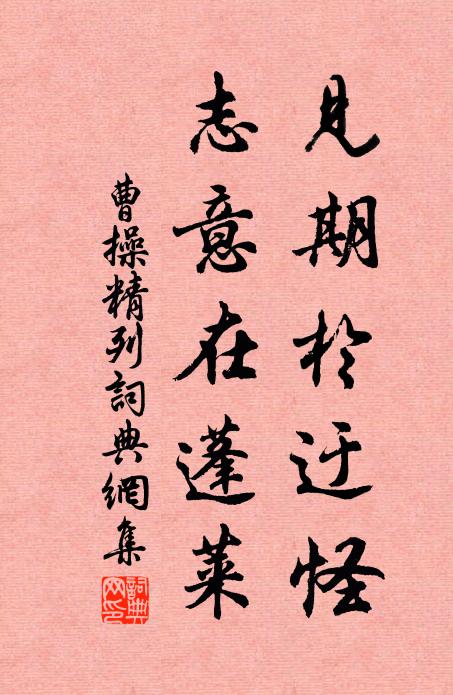 見期於迂怪
志意在蓬萊
曹操精列詞典網集
詞典網印